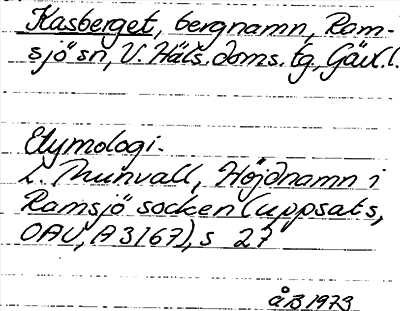 Kasberget, bergnamn, Ram-
sjö sn, V. Häls. doms. tg, Gävl. l.
Etymologi.
L. Thunvall, Höjdnamn i
Ramsjö socken (uppsats,
OAU, A3167), s 27
åB 1973